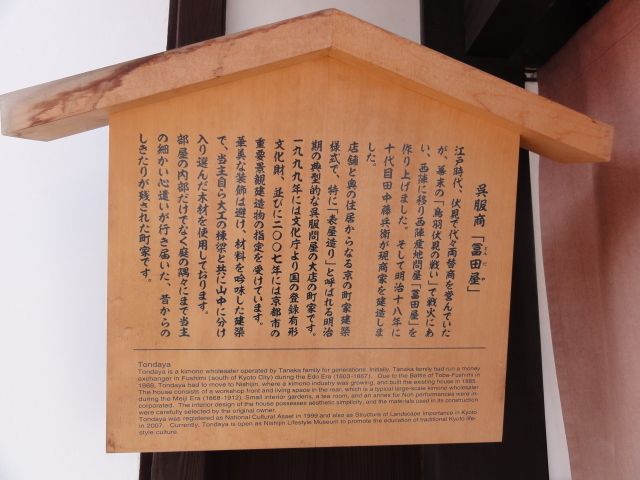 呉服商「冨田屋」
とんだや
江戸時代、伏見で代々両替商を営んでいた
が、幕末の「鳥羽伏見の戦い」で戦火にあ
い、西陣に移り西陣産地問屋「冨田屋」を
作り上げました。そして明治十八年に
十代目田中藤兵衛が現商家を建造しま
した。
店舗と奥の住居からなる京の町家建築
様式で、特に「表屋造り」と呼ばれる明治
期の典型的な呉服問屋の大店の町家です。
一九九九年には文化庁より国の登録有形
文化財、並びに二〇〇七年には京都市の
重要景観建造物の指定を受けています。
華美な装飾は避け、材料を吟味した建築
で、当主自ら大工の棟梁と共に山中に分け
入り選んだ木材を使用しております。
部屋の内部だけでなく庭の隅々にまで当主
の細かい心遣いが行き届いた、昔からの
しきたりが残された町家です。
Tondaya
Tondaya is a kimono wholesaler operated by Tanaka family for generations. Initially, Tanaka family had run a money
exchanger in Fushimi (south of Kyoto City) during the Edo Era (1603-1867). Due to the Battle of Toba-Fushimi in
1868, Tondaya had to move to Nishijin, where a kimono industry was growing, and built the existing house in 1885.
The house consists of a workshop front and living space in the rear, which is a typical large-scale kimono wholesaler
during the Meiji Era (1868-1912). Small interior gardens, a tea room, and an annex for Noh performances were in-
corporated. The interior design of the house possesses aesthetic simplicity, and the materials used in its construction
were carefully selected by the original owner.
Tondaya was registered as National Cultural Asset in 1999 and also as Structure of Landscape Importance in Kyoto
in 2007. Currently, Tondaya is open as Nishijin Lifestyle Museum to promote the education of traditional Kyoto life-
style culture.